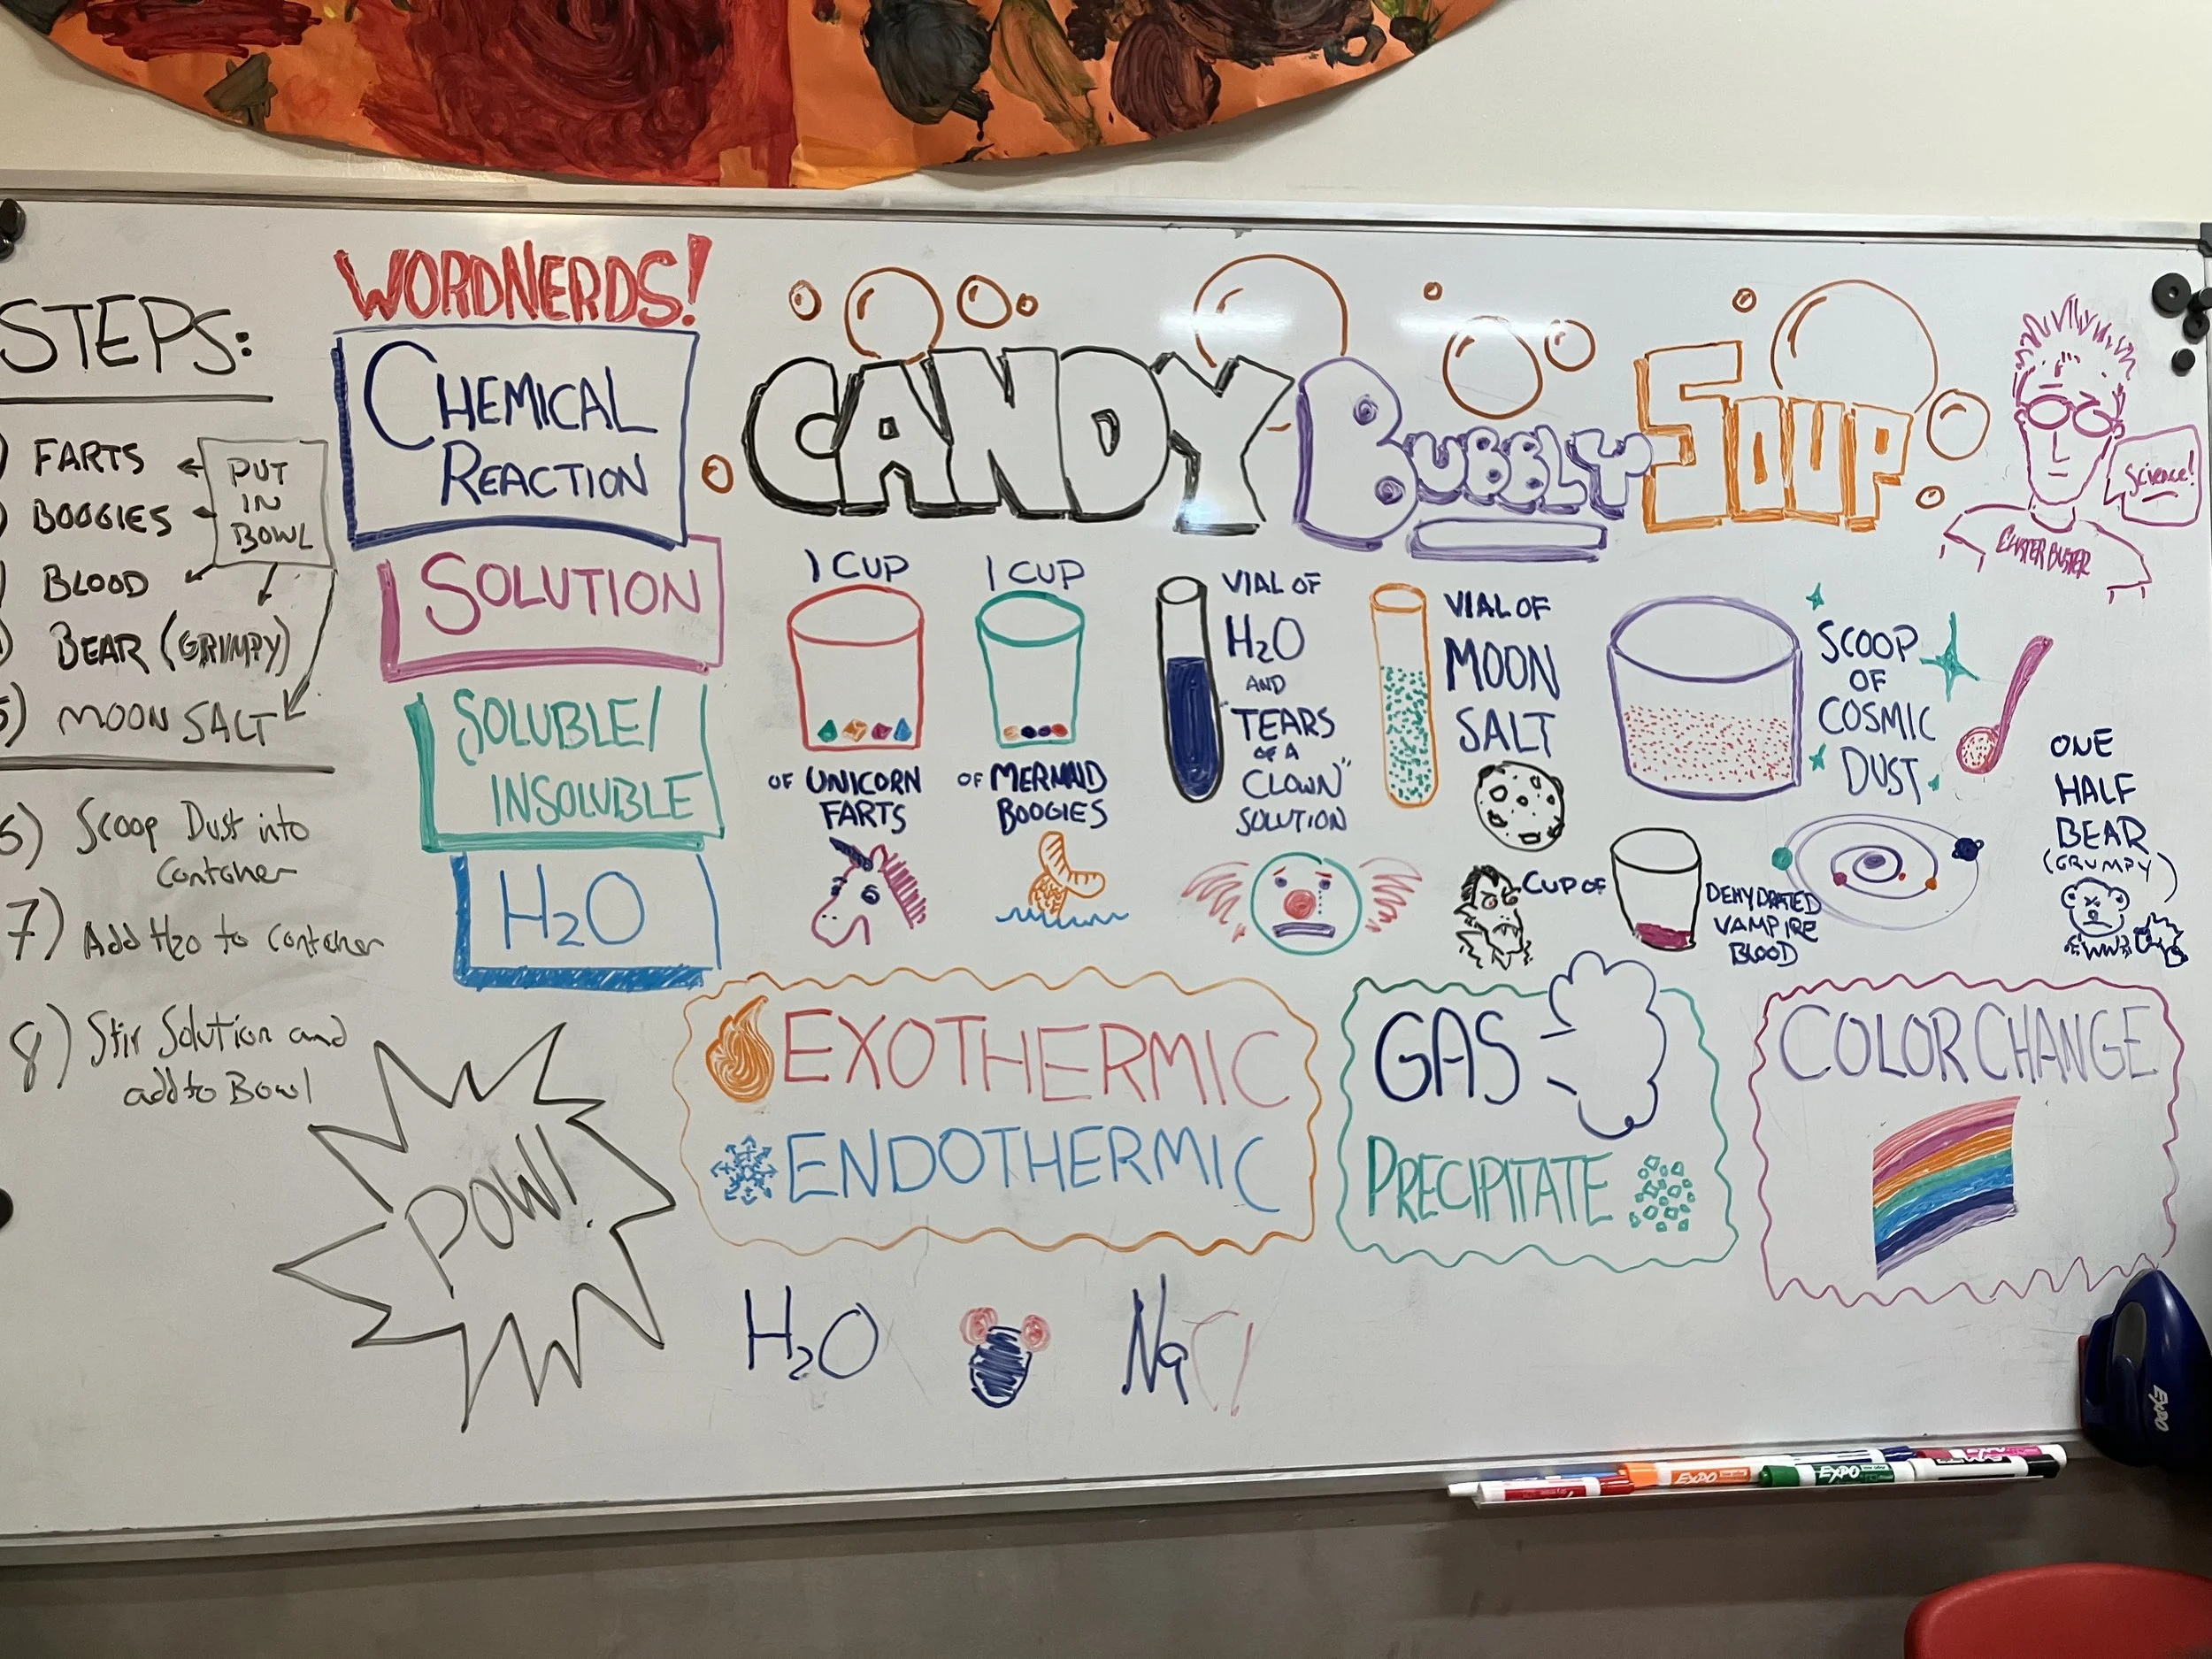 STEPS:
FARTS
BOOGIES
BLOOD
BEAR (GRUMPY)
5) MOON SALT
PUT
IN
BOWL
6) Scoop Dust into
Container
7) Add H2O to Container
8) Stir Solution and
add to Bowl
POW!
WORDNERDS!
CHEMICAL
REACTION
SOLUTION
SOLUBLE/
INSOLUBLE
H2O
CANDY BUBBLY SOUP
Science!
1 CUP
OF UNICORN
FARTS
1 CUP
OF MERMAID
BOOGIES
VIAL OF
H2O
AND
TEARS
OF A
CLOWN"
SOLUTION
VIAL OF
MOON
SALT
CUP OF
DEHYDRATED
VAMPIRE
BLOOD
SCOOP
OF
COSMIC
DUST
ONE
HALF
BEAR
(GRUMPY)
EXOTHERMIC
ENDOTHERMIC
GAS
PRECIPITATE
COLOR CHANGE
H2O
NaCl
EXPO
EXPO
EXPO